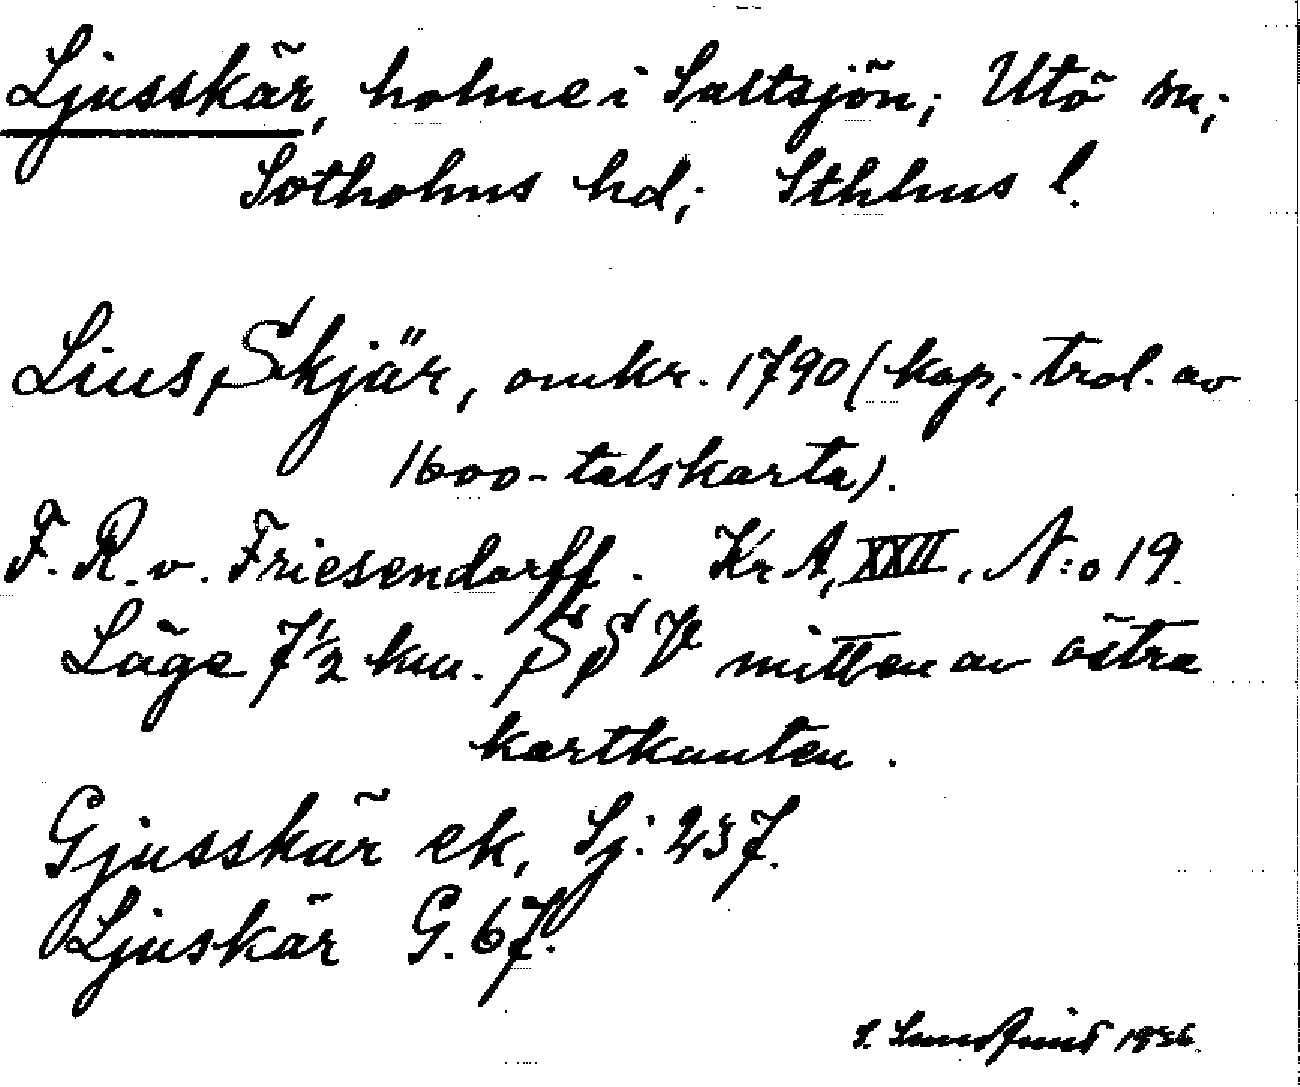 Ljusskär, holme i Saltsjön; Utö sn;
Sotholms hd; Sthlms l.
Lius, Skjär, omkr. 1790 (kop; trol. av
1600-talskarta).
F. R. v. Friesendorff. KrA, XXII, N:o 19.
Läge 7 1/2 km. SSV mitten av östra
kartkanten.
Gjusskär ek, Sj: 237.
Ljuskär G. 67.
S. 1936